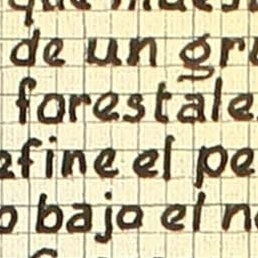 que
de un gru
forestale
efine el pe
o bajo el n